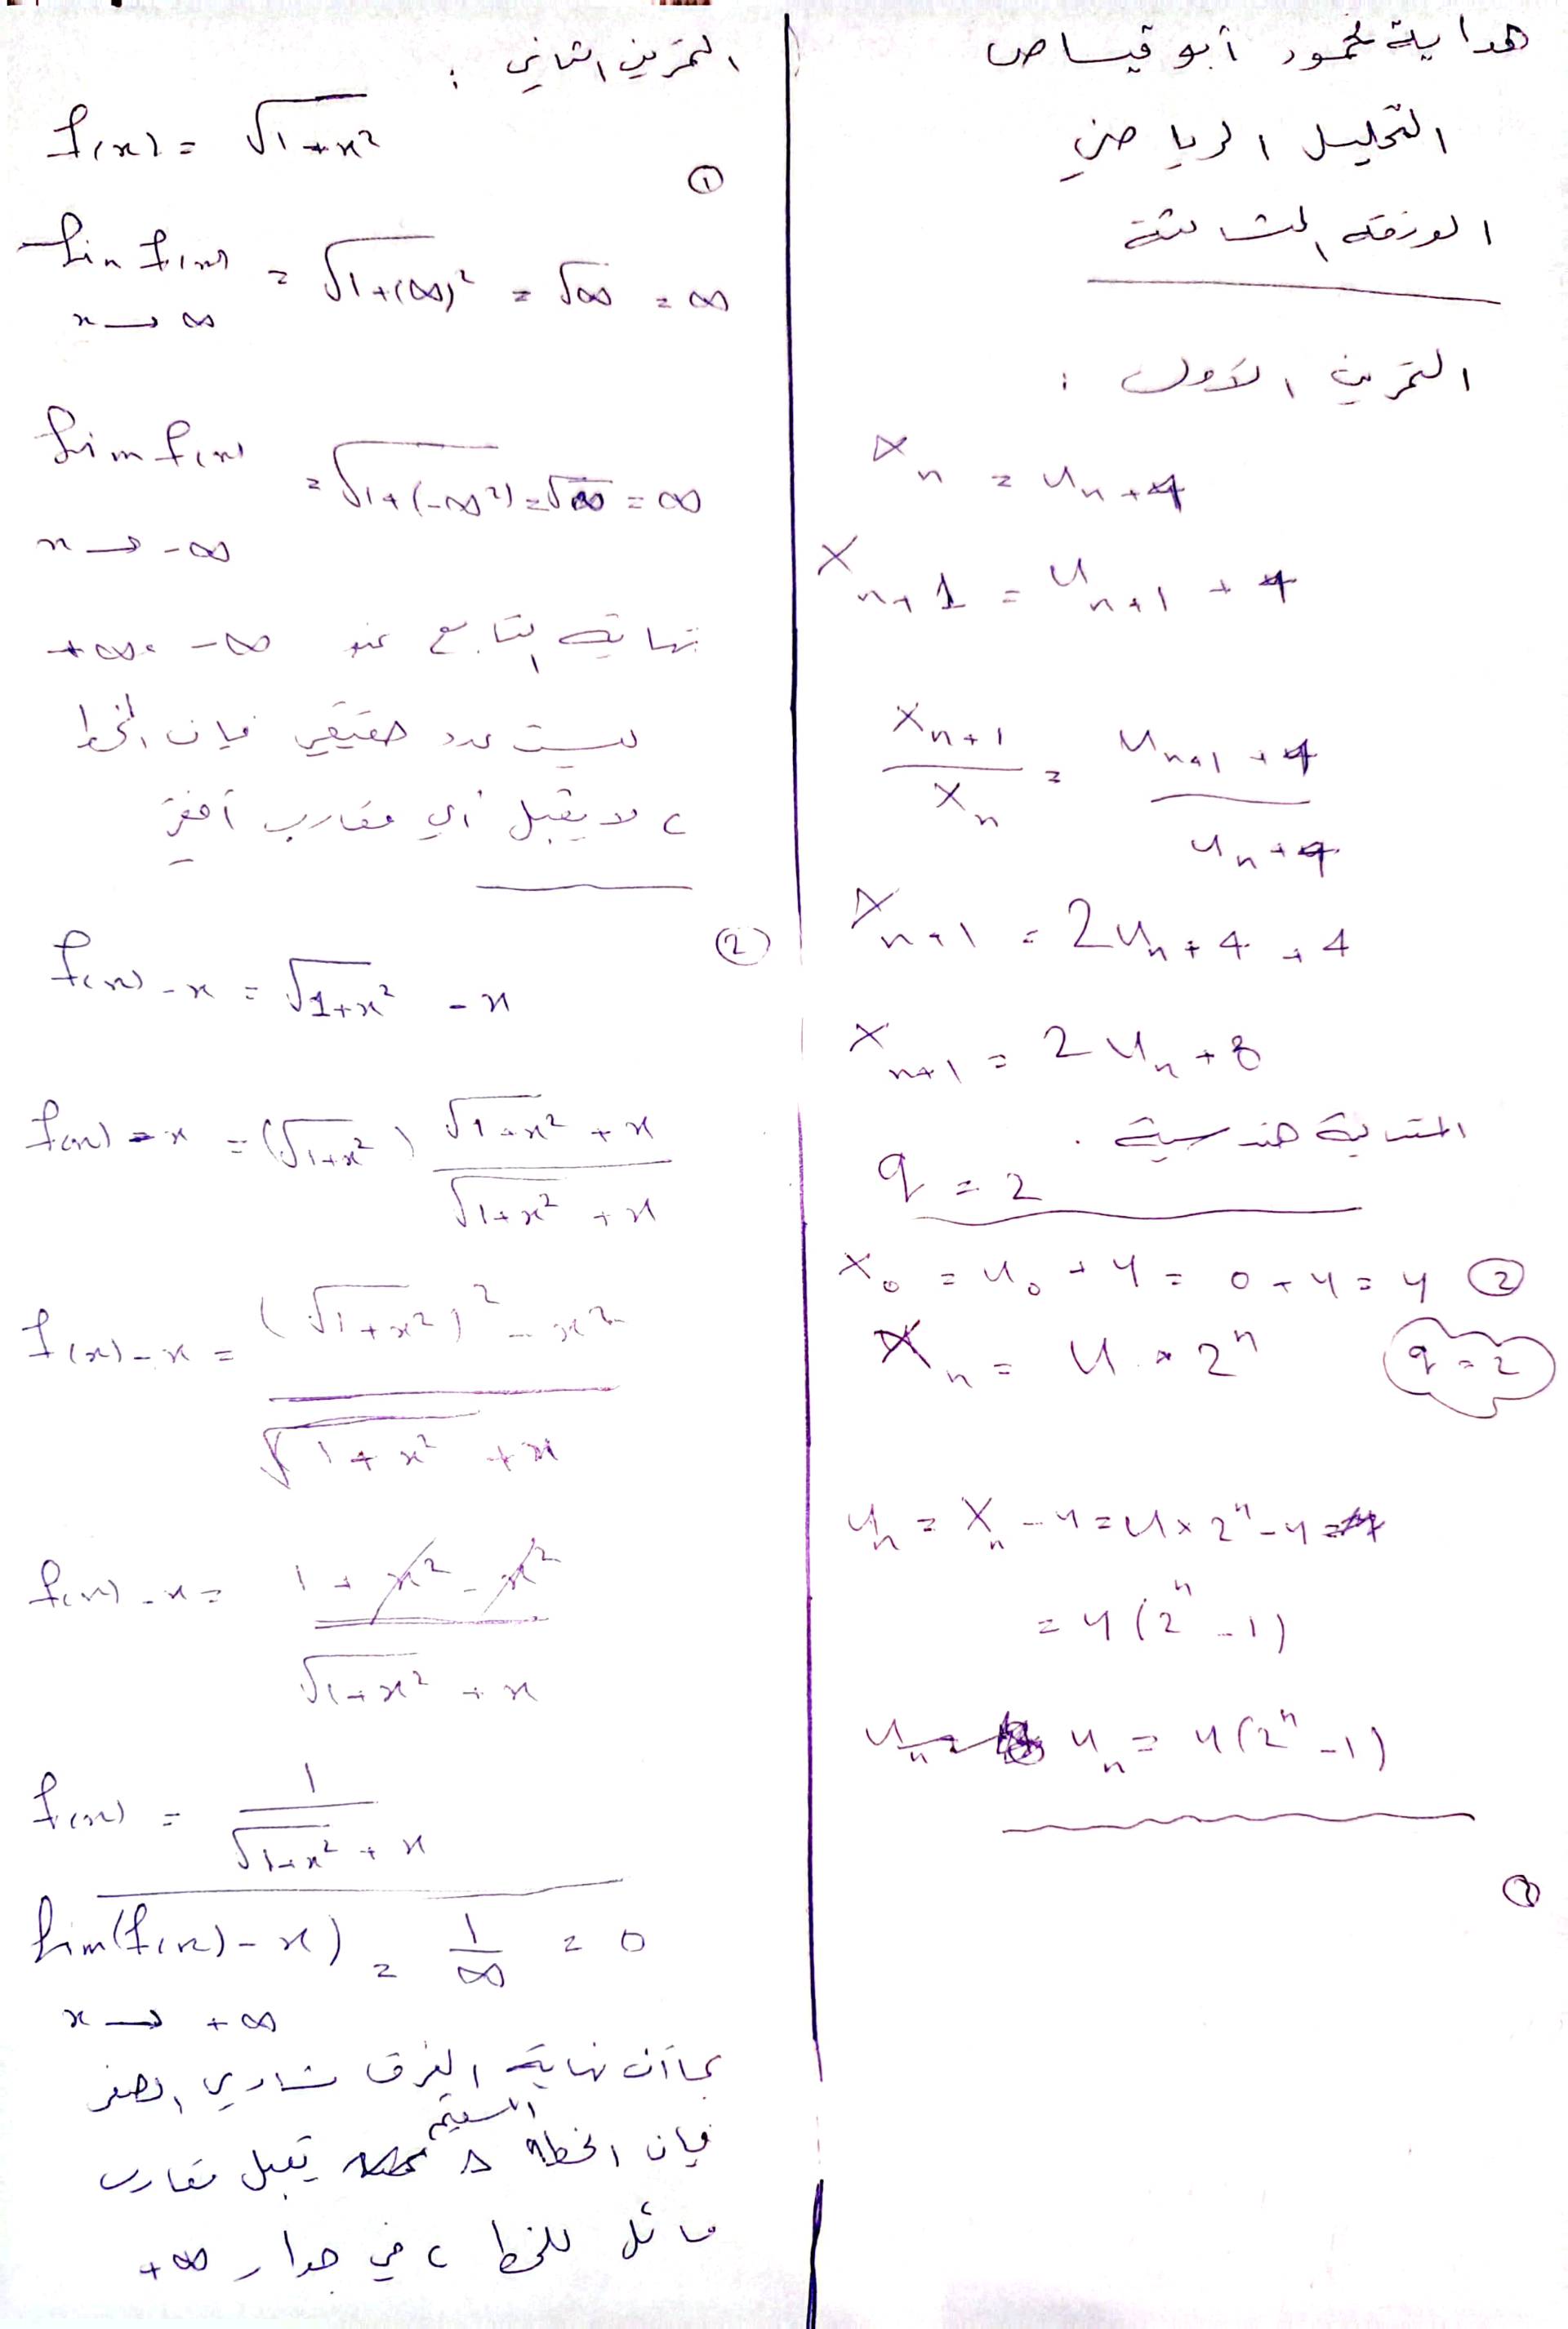 هداية محمود أبو قيساص
التحليل الرياضي
الورقة الثالثة
التمرين الأول :
x_n = u_n + 4
x_{n+1} = u_{n+1} + 4
x_{n+1} / x_n = (u_{n+1} + 4) / (u_n + 4)
x_{n+1} = 2u_n + 4 + 4
x_{n+1} = 2u_n + 8
المتتالية هندسية .
q = 2
x_0 = u_0 + 4 = 0 + 4 = 4 ②
x_n = 4 × 2^n q = 2
u_n = x_n - 4 = 4 × 2^n - 4
= 4(2^n - 1)
u_n = 4(2^n - 1)
التمرين الثاني :
f(x) = √(1+x²)
①
lim f(x) = √(1+(∞)²) = √∞ = ∞
x → ∞
lim f(x) = √(1+(-∞²)) = √∞ = ∞
x → -∞
نهاية التابع عند -∞ ، +∞
ليست عدد حقيقي فإن الخط
c لا يقبل أي مقارب أفقي
②
f(x) - x = √(1+x²) - x
f(x) - x = (√(1+x²)) (√(1+x²) + x) / (√(1+x²) + x)
f(x) - x = ((√(1+x²))² - x²) / (√(1+x²) + x)
f(x) - x = (1 + x² - x²) / (√(1+x²) + x)
f(x) = 1 / (√(1+x²) + x)
lim(f(x) - x) = 1/∞ = 0
x → +∞
بما أن نهاية الفرق تساوي الصفر
فإن الخط المستقيم Δ يقبل مقارب
مائل للخط c في جوار +∞